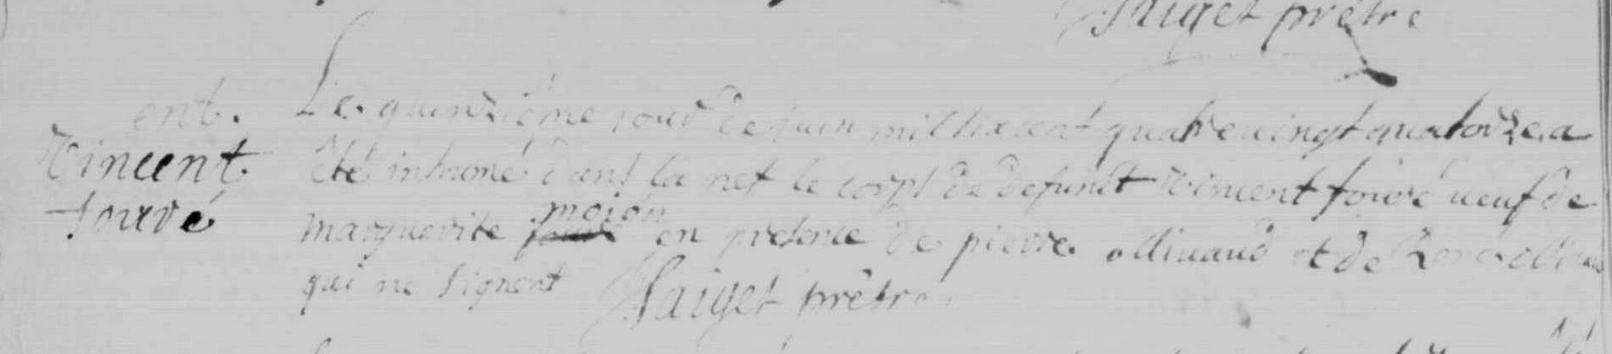 prêtre
ent.
Vincent
fouré
Le quinzième jour de juin mil six cent quatre vingt quatorze a
été inhumé dans la nef le corps de defunct Vincent fouré ueuf de
marguerite mojon en presence de pierre ollivaud et de
qui ne signent prêtre